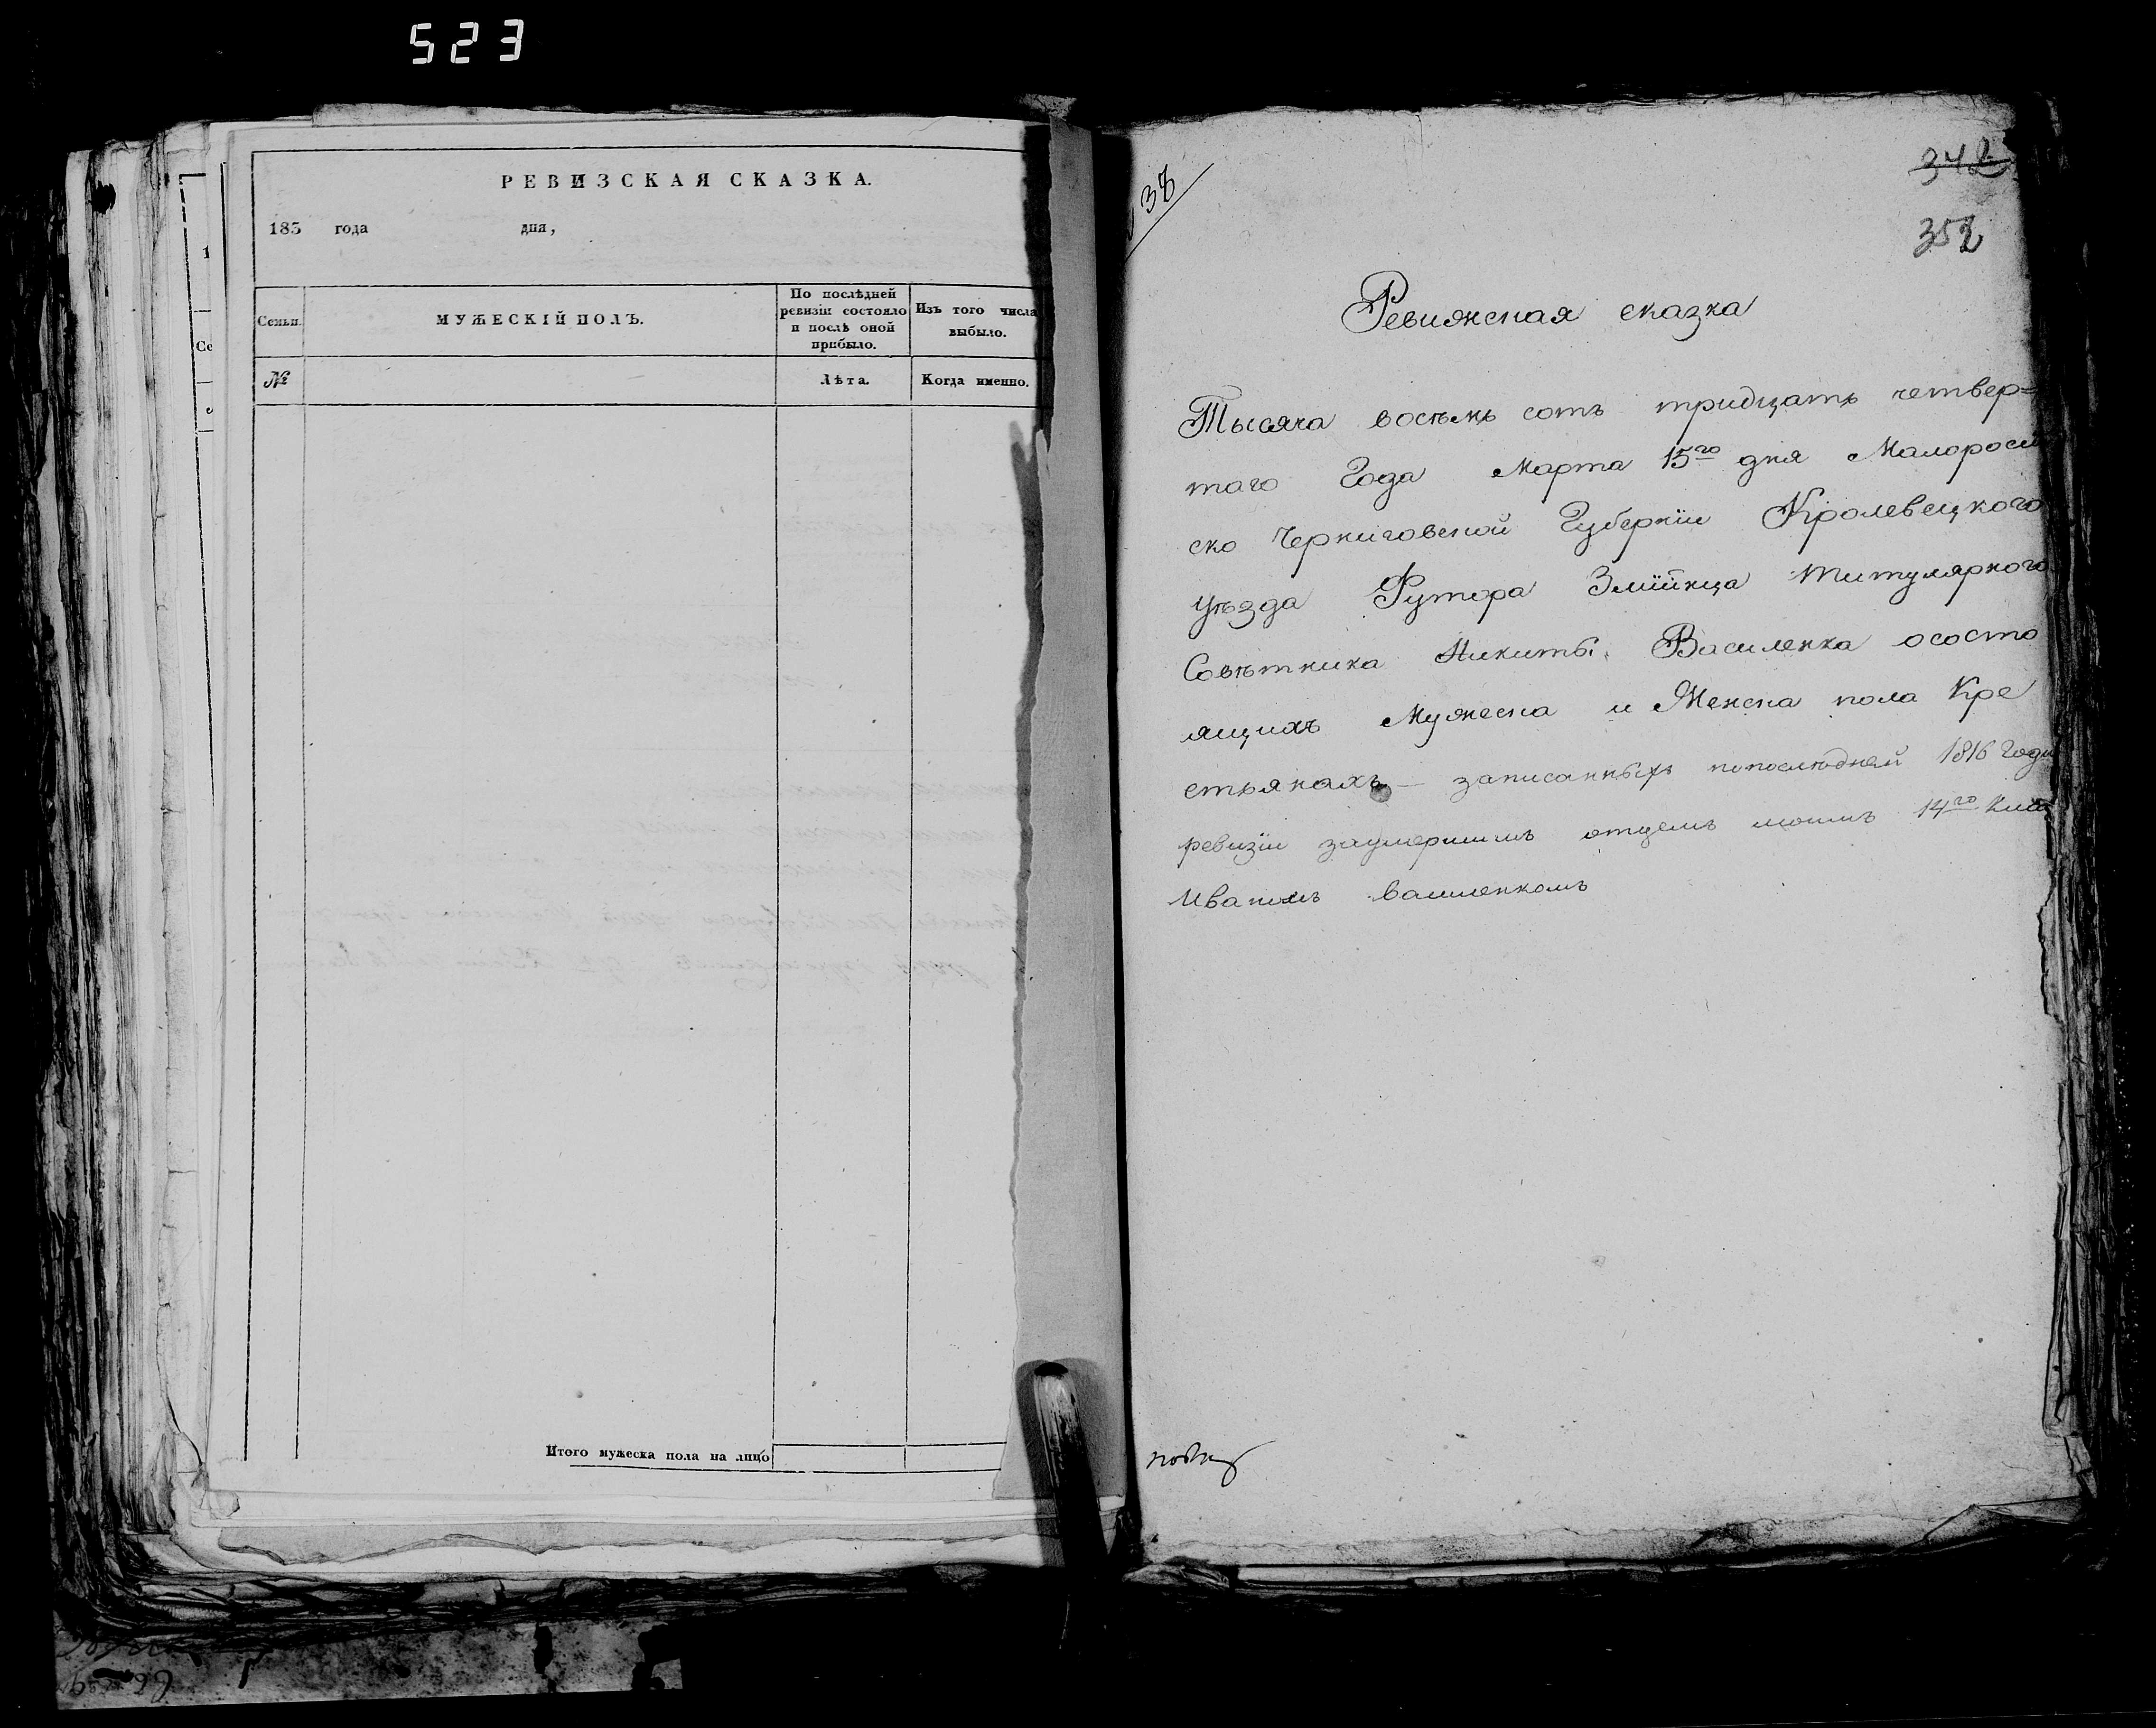 523
РЕВИЗСКАЯ СКАЗКА.
183 года дня,
Семьи.
МУЖЕСКІЙ ПОЛЪ.
По послѣдней
ревизіи состояло
и послѣ оной
прибыло.
Изъ того числа
выбыло.
№
Лѣта.
Когда именно.
Итого мужеска пола на лицо
38
342
352
Ревижская сказка
Тысяча восемь сотъ тридцать четвер=
таго Года Марта 15го дня Малоросій
ско Черниговской Губерніи Кролевецкого
уѣзда Футора Змійнца Титулярного
Совѣтника Никиты Василенка ососто
ящихъ Мужеска и Женска пола Кре
стьянахъ — записанныхъ попослѣдней 1816 Года
ревизіи заумершимъ отцемъ моимъ 14го Клас
Иваномъ Василенкомъ